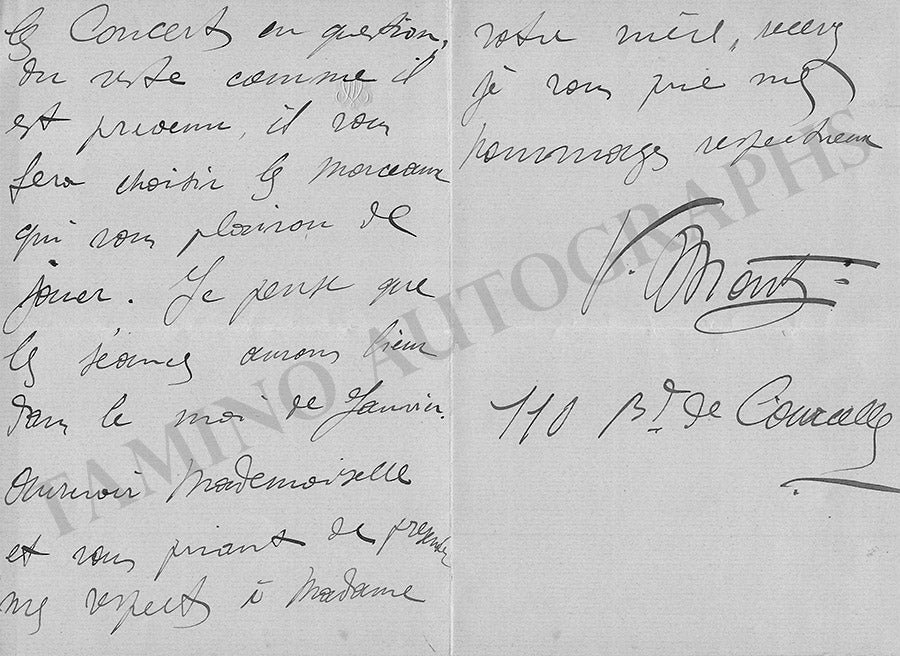 les Concerts en question,
du reste comme il
est prevenu, il vous
fera choisir les morceaux
qui vous plairon de
jouer. Je pense que
les séances aurons lieu
dans le mois de Janvier.
Aurevoir Mademoiselle
et vous priant de presenter
mes respects à Madame
votre mère, recevez
je vous prie mes
hommages respectueux
V. Monti
110 Bd. de Courcelles
TAMINO AUTOGRAPHS